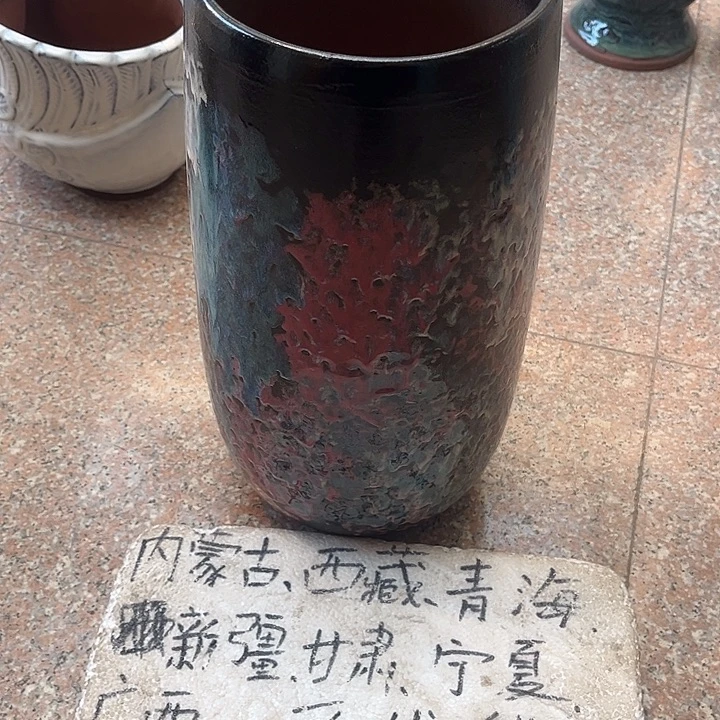 内蒙古、西藏、青海
新疆、甘肃、宁夏、
广西